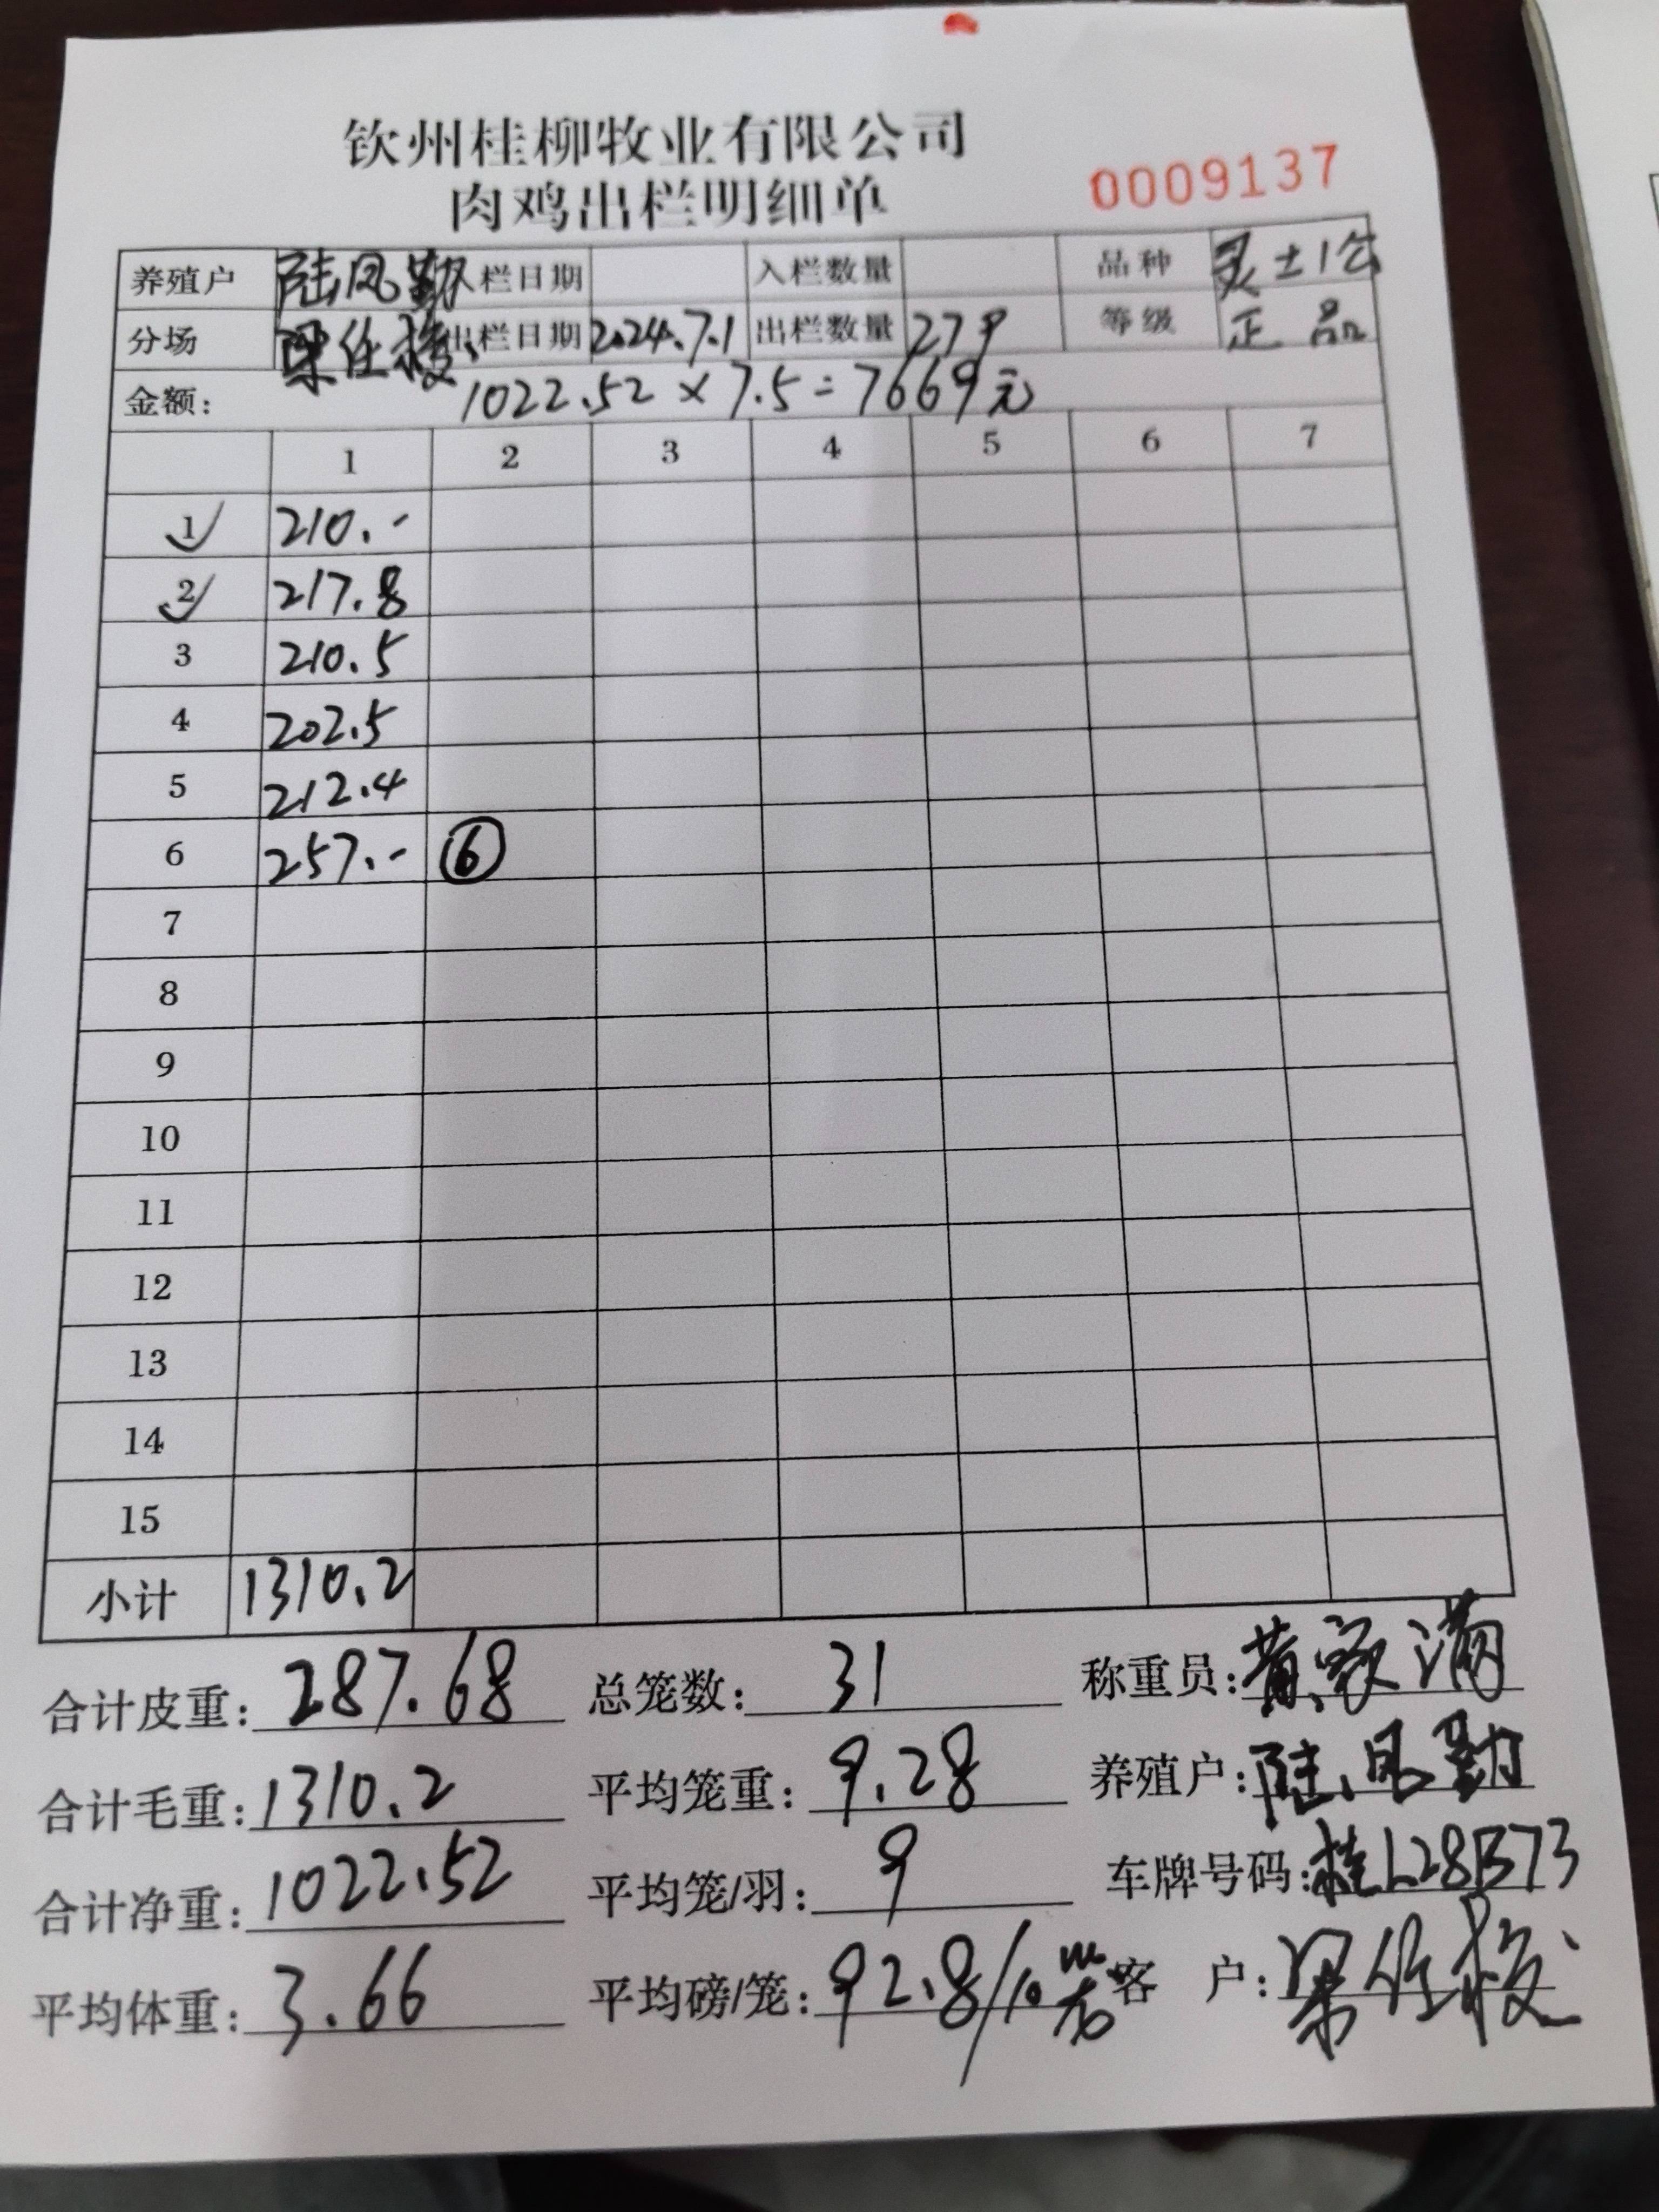 钦州桂柳牧业有限公司
肉鸡出栏明细单
0009137
养殖户 陆凤勤 栏日期 入栏数量 品种 灵土1公
分场 梁任 出栏日期 2024.7.1 出栏数量 279 等级 正品
金额: 1022.52 × 7.5 = 7669元
1 2 3 4 5 6 7
1 210.-
2 217.8
3 210.5
4 202.5
5 212.4
6 257.- ⑥
7
8
9
10
11
12
13
14
15
小计 1310.2
合计皮重: 287.68 总笼数: 31 称重员: 黄家满
合计毛重: 1310.2 平均笼重: 9.28 养殖户: 陆凤勤
合计净重: 1022.52 平均笼/羽: 9 车牌号码: 桂L28B73
平均体重: 3.66 平均磅/笼: 92.8/10 客 户: 梁任